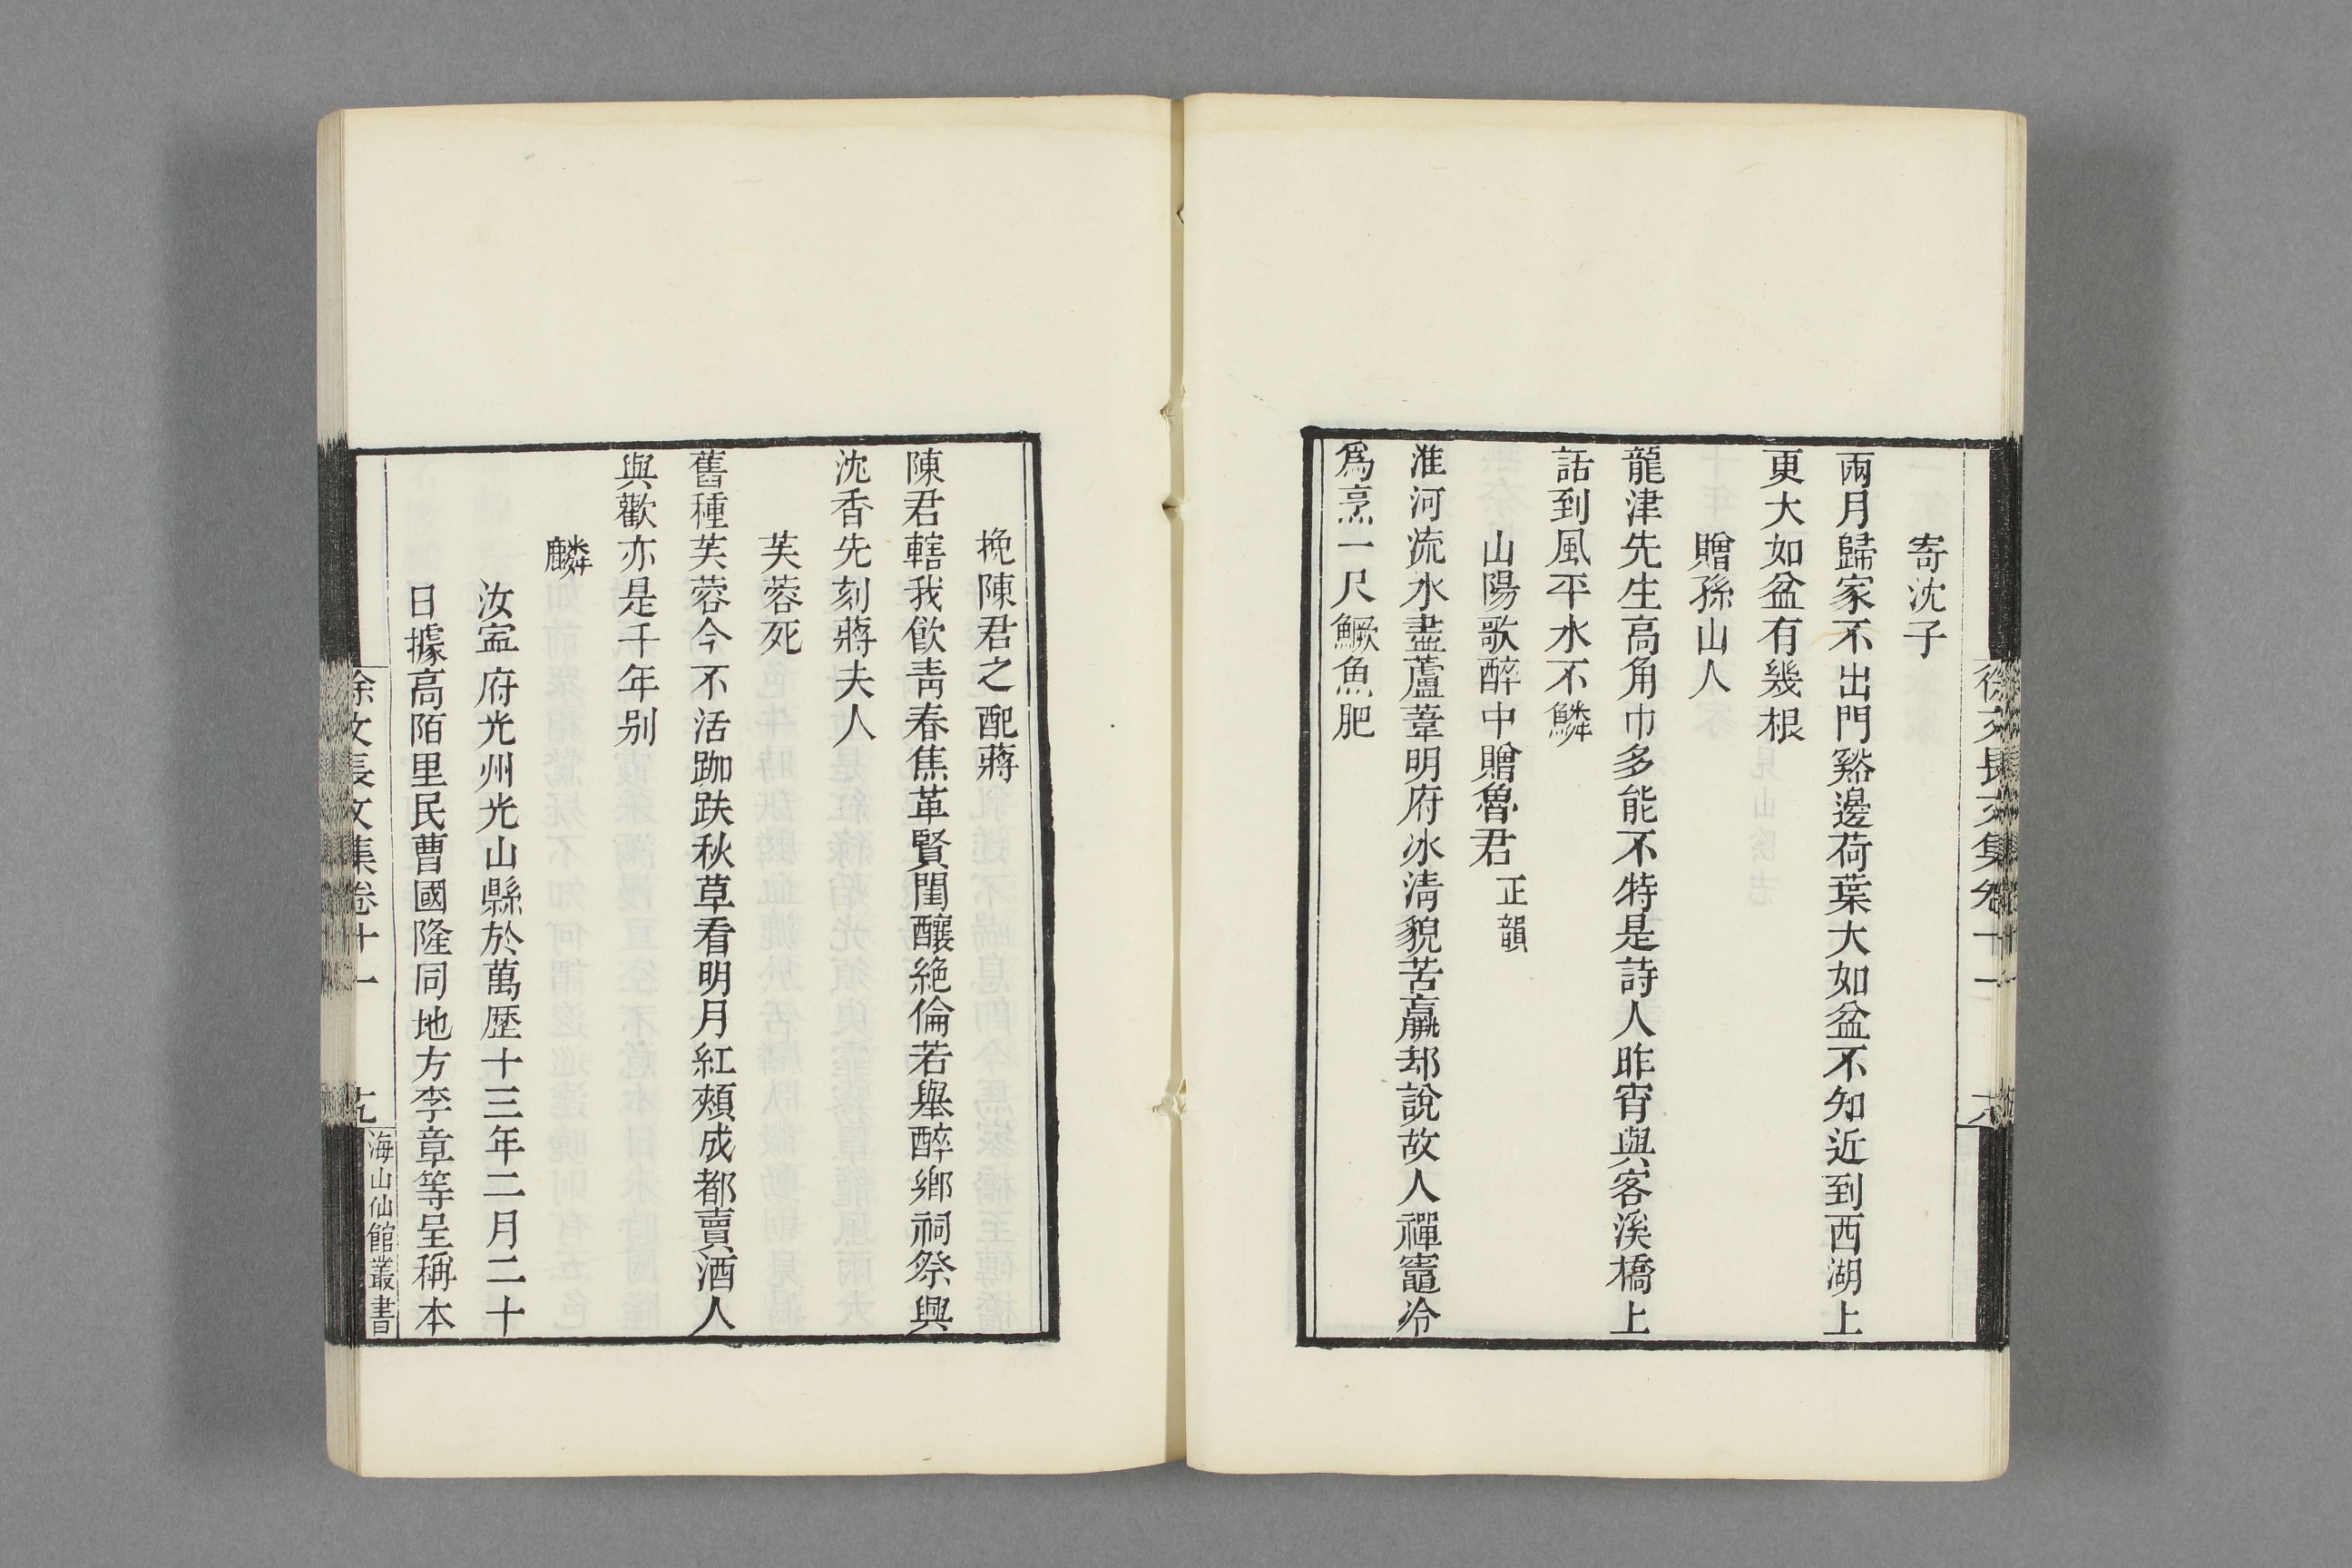 寄沈子
兩月歸家不出門谿邊荷葉大如盆不知近到西湖上
更大如盆有幾根
贈孫山人
龍津先生高角巾多能不特是詩人昨宵與客溪橋上
話到風平水不鱗
山陽歌醉中贈魯君正韻
淮河流水盡蘆葦明府冰清貌苦羸却說故人禪竈冷
爲烹一尺鱖魚肥
挽陳君之配蔣
陳君轄我飮靑春焦革賢閨釀絶倫若舉醉鄉祠祭興
沈香先刻蔣夫人
芙蓉死
舊種芙蓉今不活跏趺秋草看明月紅頰成都賣酒人
與歡亦是千年别
麟
汝寍府光州光山縣於萬歷十三年二月二十
日據高陌里民曹國隆同地方李章等呈稱本
徐文長文集卷十一
海山仙館叢書